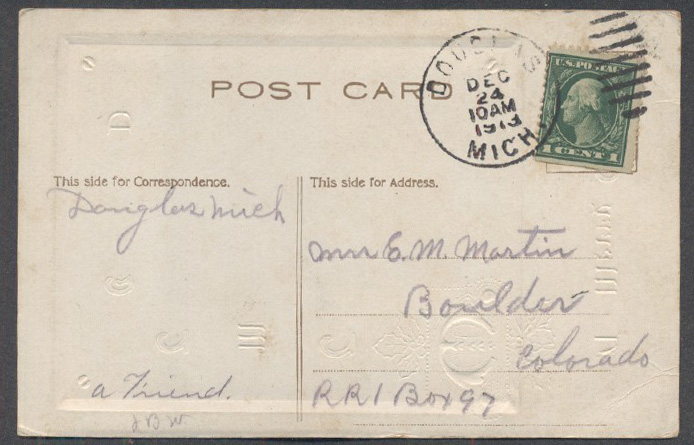 POST CARD
DOUGLAS
DEC
24
10AM
1913
MICH.
U.S. POSTAGE
1 CENT 1
This side for Correspondence.
Douglas Mich
a Friend.
This side for Address.
Mrs E. M. Martin
Boulder
Colorado
RR1 Box 97